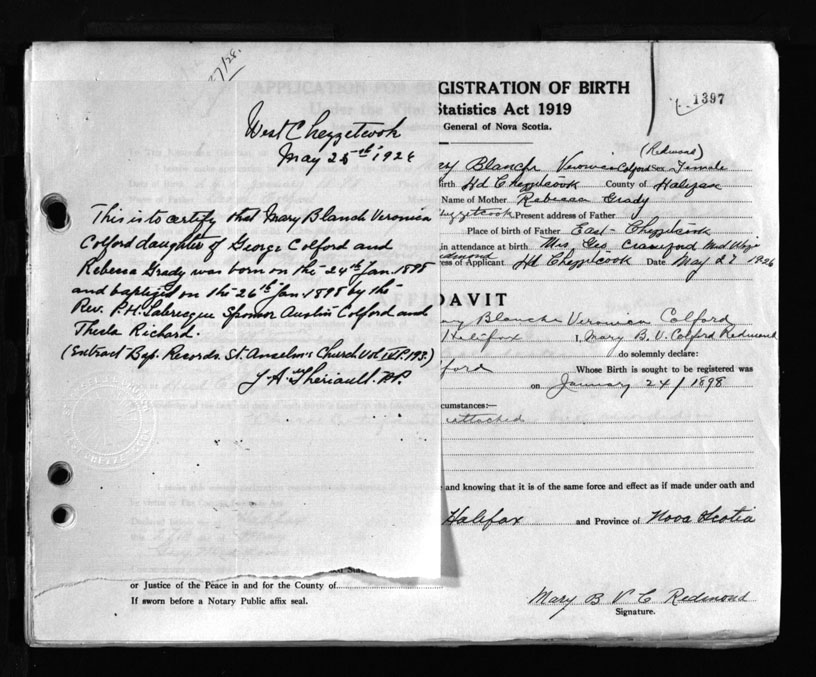 27/28.
West Chezzetcook
May 25th 1926
This is to certify that Mary Blanch Veronica
Colford daughter of George Colford and
Rebecca Grady was born on the 24th Jan 1898
and baptized on the 26th Jan 1898 by the
Rev. P.H. Sponsor Austin Colford and
Thesla Richard.
(Extract Bap. Records. St. Anselm's Church Vol P. 198)
J. A. Theriault. P.P.
GISTRATION OF BIRTH
Statistics Act 1919
General of Nova Scotia.
1397
(Redmond)
ry Blanche Veronica Colford Sex Female
irth Hd Chezzetcook County of Halifax
Name of Mother Rebecca Grady
hezzetcook Present address of Father
Place of birth of Father East Chezzetcook
in attendance at birth Mrs. Geo. Crawford
edmond
ress of Applicant Hd Chezzetcook Date May 27 1926
AFFIDAVIT
ry Blanche Veronica Colford
Halifax I, Mary B. V. Colford Redmond
do solemnly declare:
ford Whose Birth is sought to be registered was
on January 24/1898
cumstances:—
attached
e and knowing that it is of the same force and effect as if made under oath and
Halifax and Province of Nova Scotia
or Justice of the Peace in and for the County of
If sworn before a Notary Public affix seal.
Mary B V C Redmond
Signature.